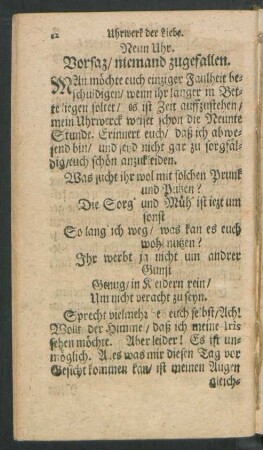 82 Uhrwerk der Liebe.
Neun Uhr.
Vorsaz / niemand zugefallen.
MAn möchte euch einziger Faulheit be-
schuldigen / wenn ihr länger in Bet-
te liegen soltet / es ist Zeit auffzustehen /
mein Uhrwerck weiset schon die Neunte
Stunde. Erinnert euch / daß ich abwe-
send bin / und seyd nicht gar zu sorgfäl-
dig / euch schön anzukleiden.
Was sucht ihr wol mit solchen Prunk
und Putzen?
Die Sorg und Müh' ist iezt um
sonst
So lang ich weg / was kan es euch
wohl nutzen?
Ihr werbt ja nicht um andrer
Gunst
Genug / in Kleidern rein /
Um nicht veracht zu seyn.
Sprecht vielmehr euch selbst / Ach!
Wolte der Himmel / daß ich meine Iris
sehen möchte. Aber leider! Es ist un-
möglich. Alles was mir diesen Tag vor
Gesicht kommen kan / ist meinen Augen
gleich-